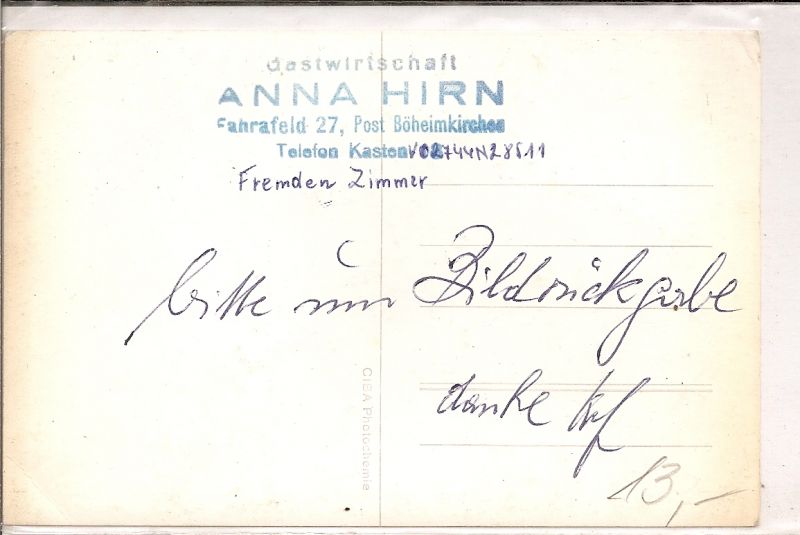 Gastwirtschaft
ANNA HIRN
Fahrafeld 27, Post Böheimkirchen
Telefon Kasten
Fremden Zimmer
bitte um Bildrückgabe
danke
13,-
CIBA Photochemie